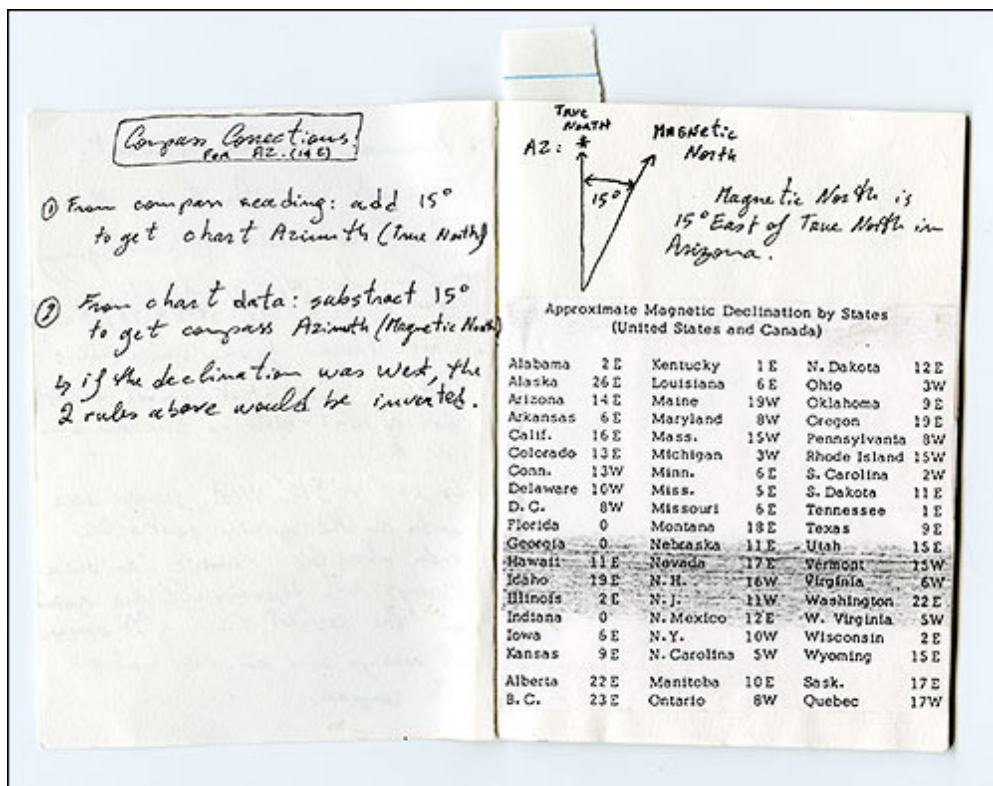 Compass Corrections
FOR AZ. (14E)
① From compass reading: add 15°
to get chart Azimuth (True North)
② From chart data: substract 15°
to get compass Azimuth (Magnetic North)
↳ if the declination was West, the
2 rules above would be inverted.
TRUE
NORTH
AZ:
MAGNETIC
North
15°
Magnetic North is
15° East of True North in
Arizona.
Approximate Magnetic Declination by States
(United States and Canada)
Alabama 2 E Kentucky 1 E N. Dakota 12 E
Alaska 26 E Louisiana 6 E Ohio 3W
Arizona 14 E Maine 19W Oklahoma 9 E
Arkansas 6 E Maryland 8W Oregon 19 E
Calif. 16 E Mass. 15W Pennsylvania 8W
Colorado 13 E Michigan 3W Rhode Island 15W
Conn. 13W Minn. 6 E S. Carolina 2W
Delaware 10W Miss. 5 E S. Dakota 11 E
D. C. 8W Missouri 6 E Tennessee 1 E
Florida 0 Montana 18 E Texas 9 E
Georgia 0 Nebraska 11 E Utah 15 E
Hawaii 11 E Nevada 17 E Vermont 15W
Idaho 19 E N. H. 16W Virginia 6W
Illinois 2 E N. J. 11W Washington 22 E
Indiana 0 N. Mexico 12 E W. Virginia 5W
Iowa 6 E N. Y. 10W Wisconsin 2 E
Kansas 9 E N. Carolina 5W Wyoming 15 E
Alberta 22 E Manitoba 10 E Sask. 17 E
B. C. 23 E Ontario 8W Quebec 17W